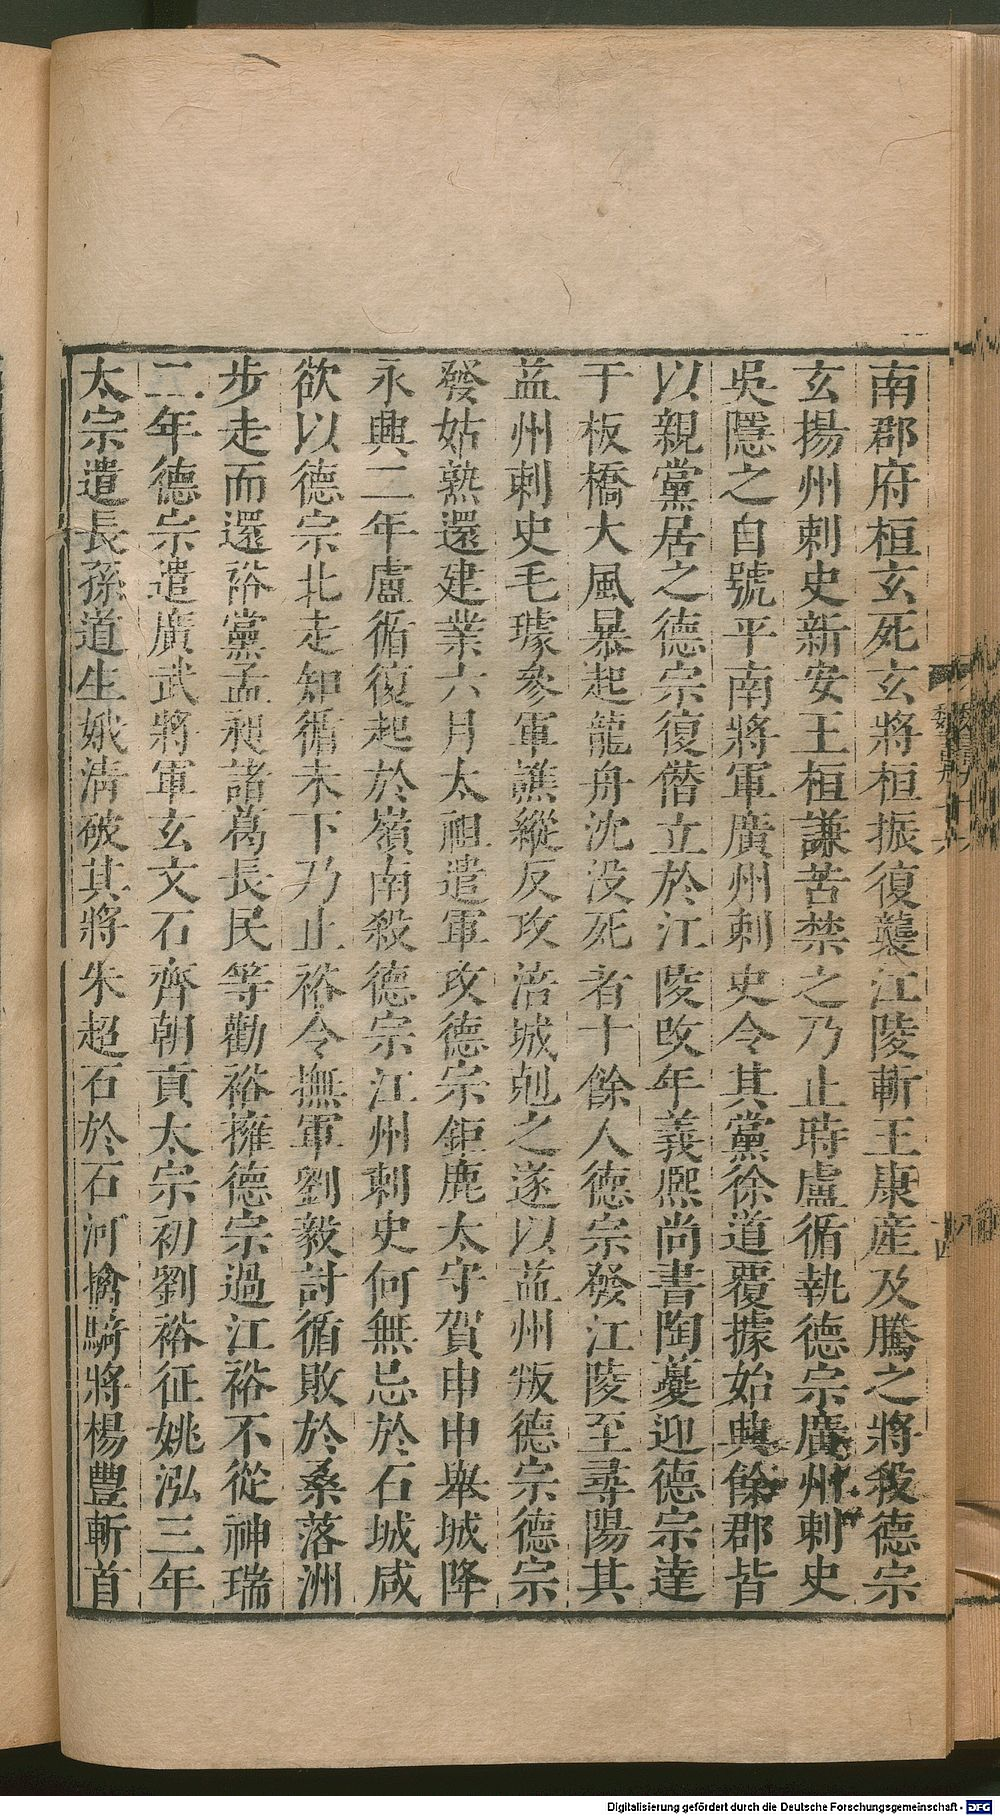 南郡府桓玄死玄將桓振復襲江陵斬王康産及騰之將殺德宗
玄揚州刺史新安王桓謙苦禁之乃止時盧循執德宗廣州刺史
吳隱之自號平南將軍廣州刺史令其黨徐道覆據始興餘郡皆
以親黨居之德宗復僭立於江陵改年義熈尚書陶夔迎德宗達
于板橋大風暴起龍舟沈没死者十餘人德宗發江陵至尋陽其
益州刺史毛璩參軍譙縱反攻涪城剋之遂以益州叛德宗德宗
發姑熟還建業六月太祖遣軍攻德宗鉅鹿太守賀申申舉城降
永興二年盧循復起於嶺南殺德宗江州刺史何無忌於石城咸
欲以德宗北走知循未下乃止裕令撫軍劉毅討循敗於桑落洲
步走而還裕黨孟昶諸葛長民等勸裕擁德宗過江裕不從神瑞
二年德宗遣廣武將軍玄文石齊朝貢太宗初劉裕征姚泓三年
太宗遣長孫道生娥淸破其將朱超石於石河擒騎將楊豐斬首
Digitalisierung gefördert durch die Deutsche Forschungsgemeinschaft - DFG